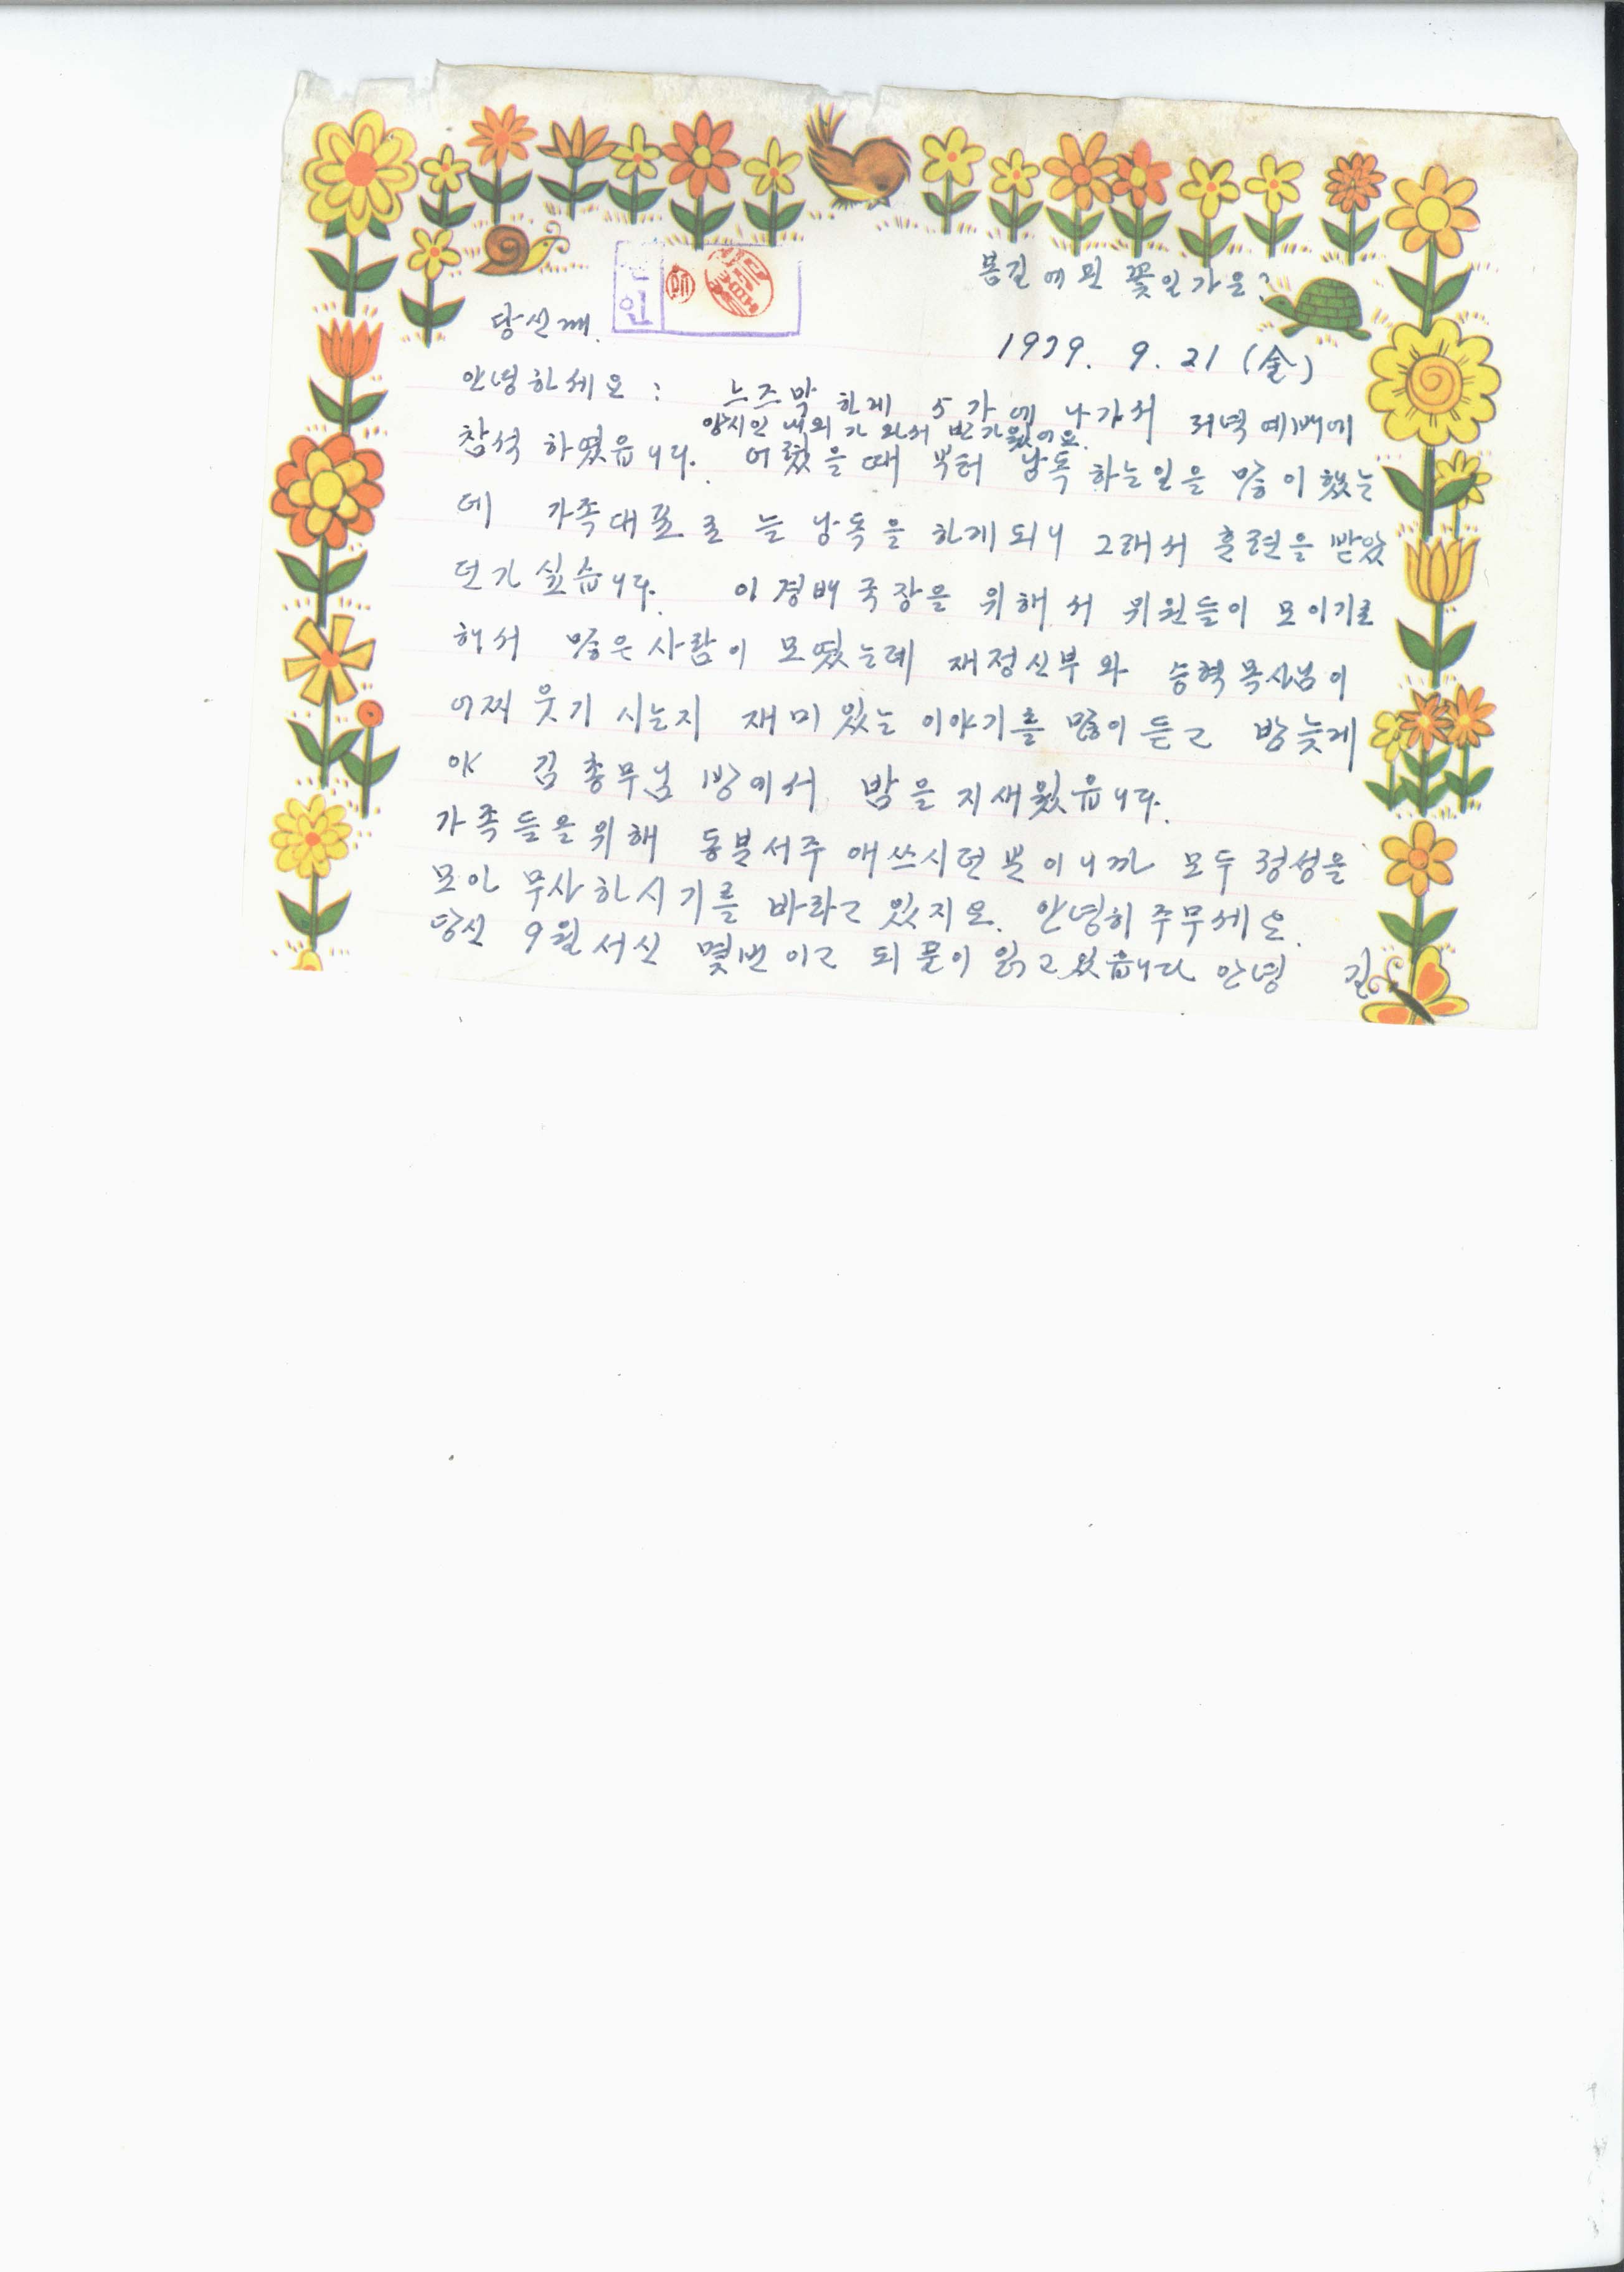 봄길에 핀 꽃인가요?
당신께.
인
1979. 9. 21 (金)
안녕하세요: 느즈막 하게 5가에 나가서 저녁예배에
양시인 내외가 와서 반가웠어요.
참석 하였읍니다. 어렸을때 부터 낭독 하는일을 많이 했는
데 가족대표로 는 낭독을 하게되니 그래서 훈련을 받았
던가 싶습니다. 이경배 국장을 위해서 위원들이 모이기로
해서 많은사람이 모였는데 재정신부와 승혁목사님이
어찌 웃기 시는지 재미있는 이야기를 많이 듣고 밤늦게
야 김총무님 방에서 밤을 지새웠읍니다.
가족들을위해 동분서주 애쓰시던 분이니까 모두 정성을
모아 무사하시기를 바라고 있지요. 안녕히 주무세요.
당신 9월서신 몇번이고 되풀이 읽고있읍니다 안녕 길